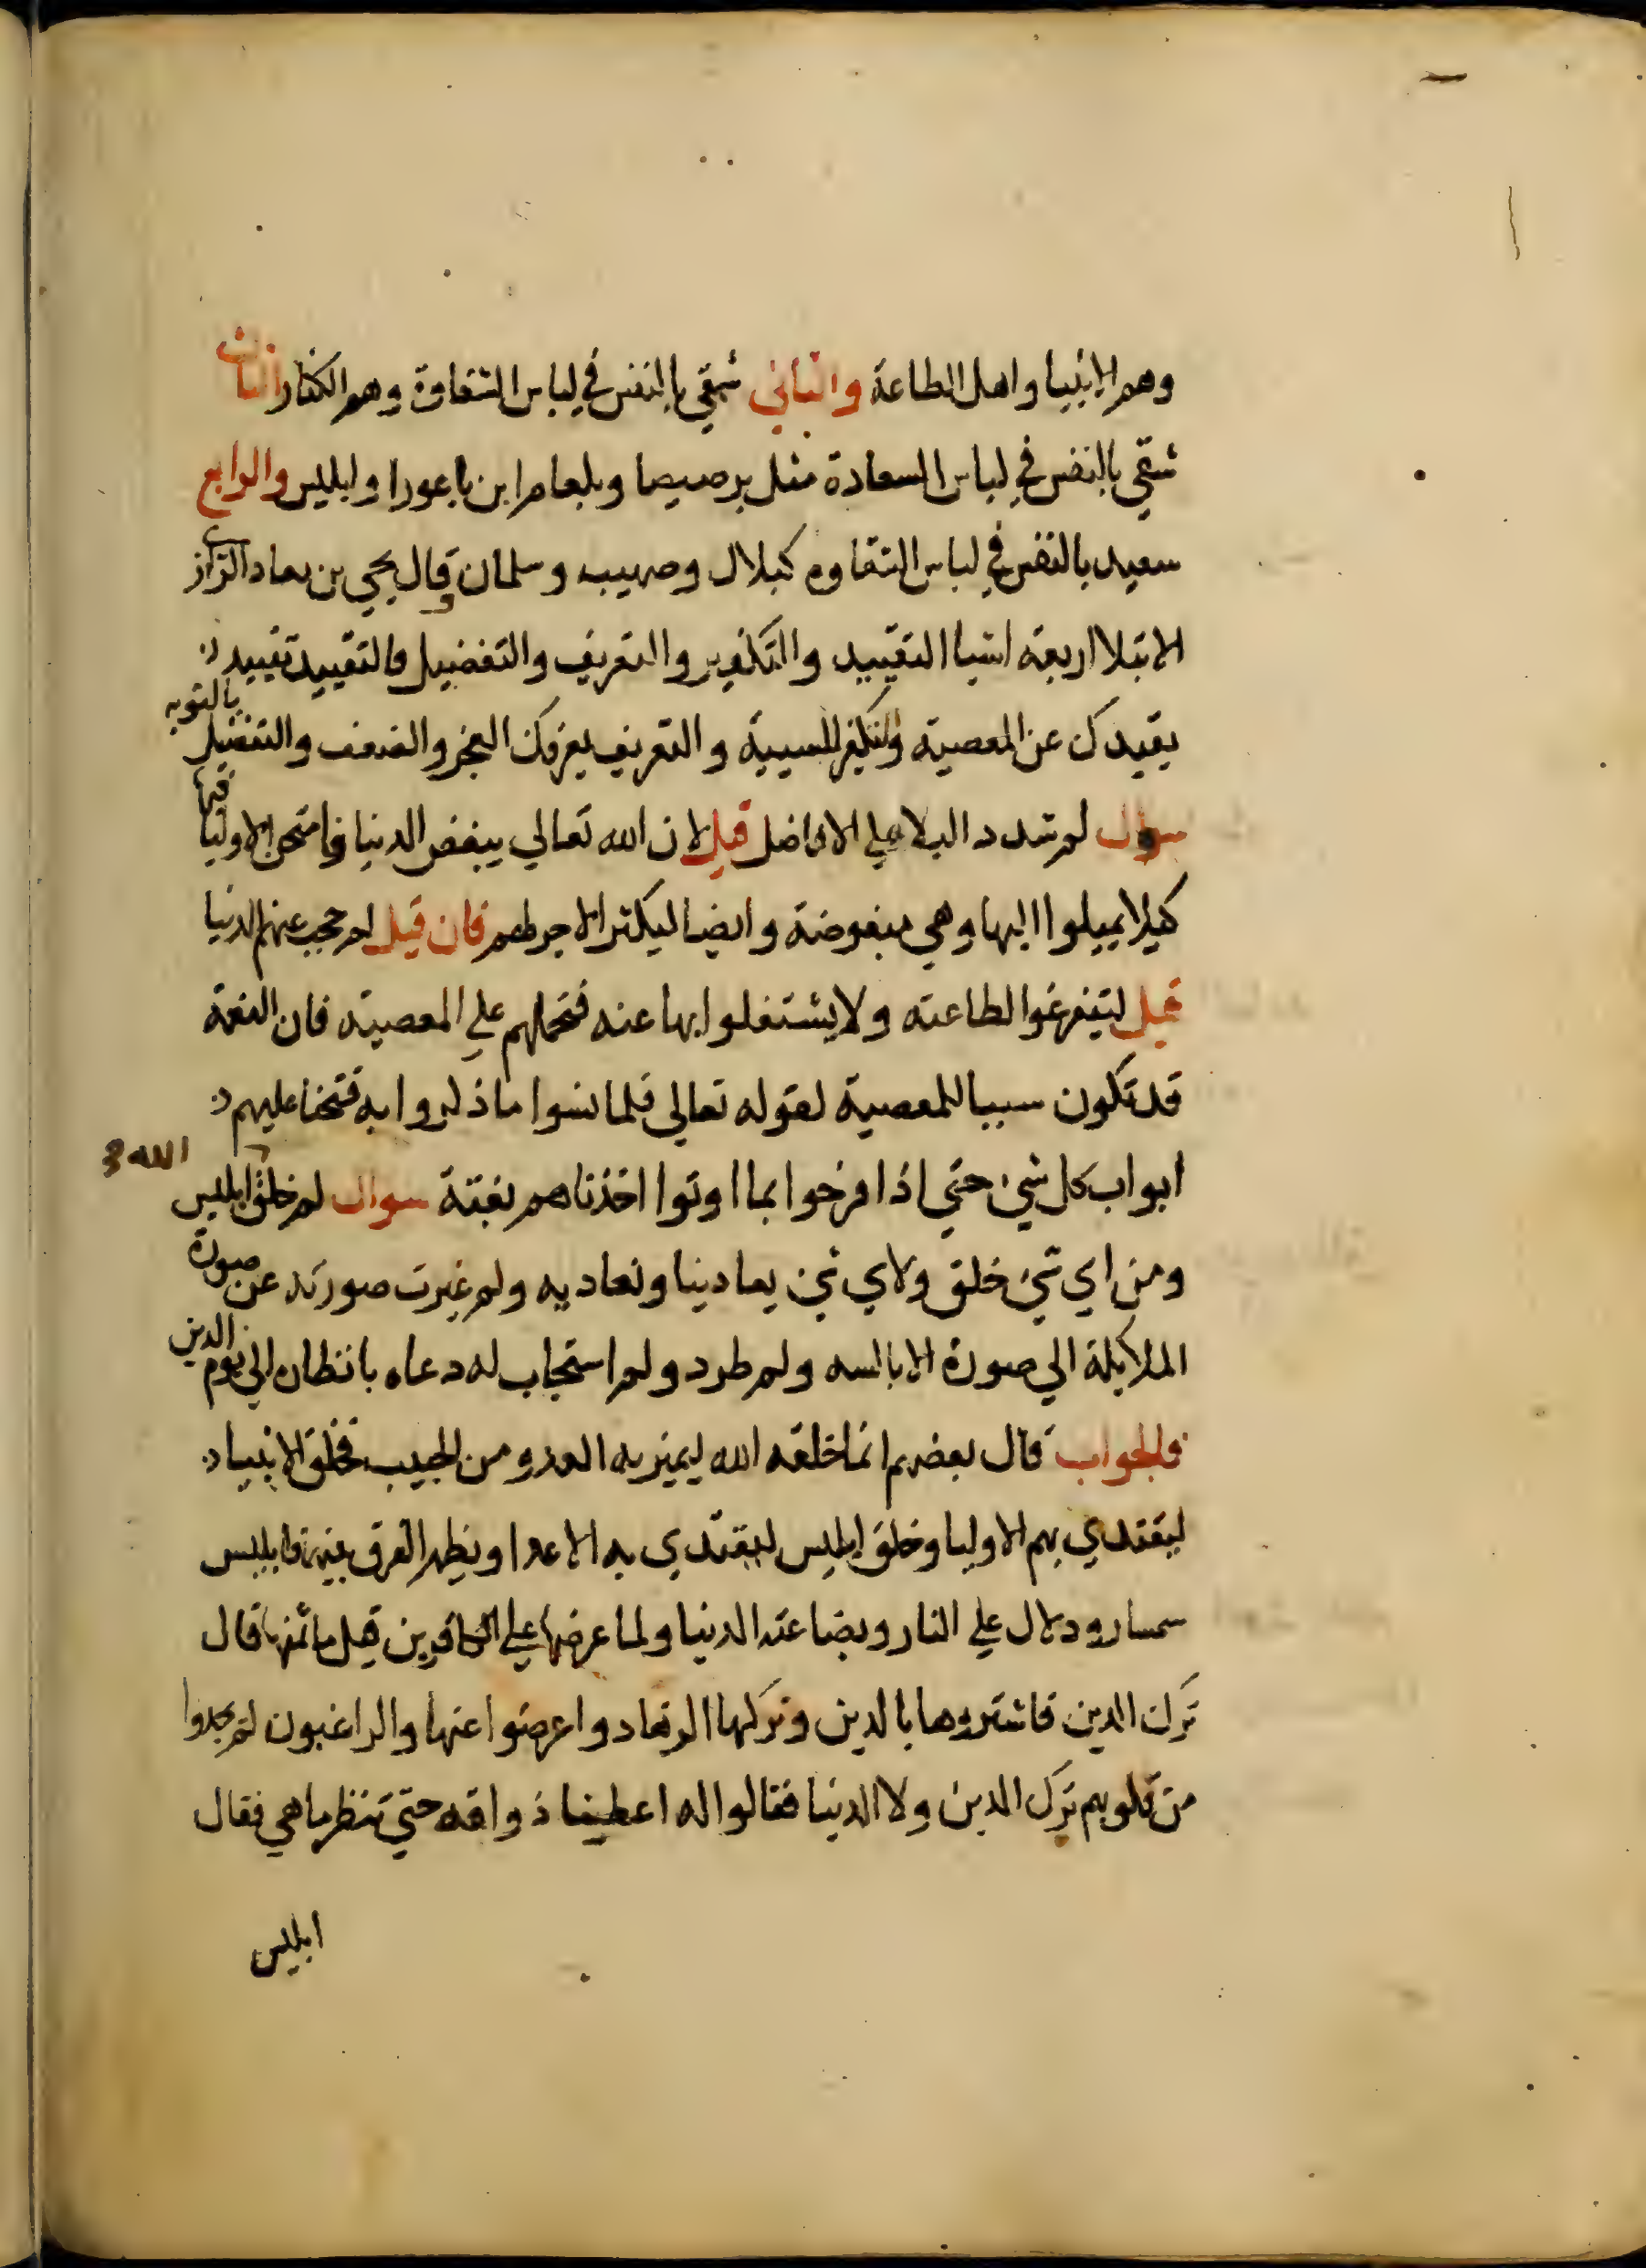 وهم الانبيا واهل الطاعة والثاني شقي بالنفس في لباس الشقاوة وهم الكفار الثالث
شقي بالنفس في لباس السعادة مثل برصيصا وبلعام ابن باعورا وابليس والرابع
سعيد بالنفس في لباس الشقاوه كبلال وصهيب وسلمان وقال يحيي بن معاد الرازي
الابتلا اربعة اشيا التقييد والتكفير والتعريف والتفضيل فالتقييد تقييد
يقيدك عن المعصية والتكفير للسيية والتعريف يعرفك العجز والضعف والتفضيل بالتوبه
سوال لم شدد البلا علي الافاضل قيل لان الله تعالي يبغض الدنيا فامتحن الاوليا فيها
كيلا يميلوا اليها وهي مبغوضة وايضا ليكثر الاجر لهم فان قيل لم حجب عنهم الدنيا
قيل ليتفرغوا لطاعته ولا يشتغلوا بها عنه فتحملهم علي المعصية فان النعمة
قد تكون سببا للمعصية لقوله تعالي فلما نسوا ما ذكروا به فتحنا عليهم
ابواب كل شيء حتي اذا فرحوا بما اوتوا اخذناهم بغتة سوال لم خلق الله ابليس
ومن اي شيء خلق ولاي شيء يعادينا ونعاديه ولم غيرت صورته عن صورة
الملايكة الي صورة الابالسه ولم طرد ولم استجاب له دعاه بانتظاره الي يوم الدين
فالجواب قال بعضهم انما خلقه الله ليميز به العدو من الحبيب فخلق الانبيا
ليقتدي بهم الاوليا وخلق ابليس ليقتدي به الاعدا ويظهر الفرق بينهم فابليس
سمسار ودلال علي النار وبضاعته الدنيا ولما عرضها علي الكافرين قيل ما ثمنها قال
ترك الدين فاشتروها بالدين وتركها الزهاد واعرضوا عنها والراغبون لم يجدوا
من قلوبهم ترك الدين ولا الدنيا فقالوا له اعطينا ذواقه حتي ننظر ما هي فقال
ابليس